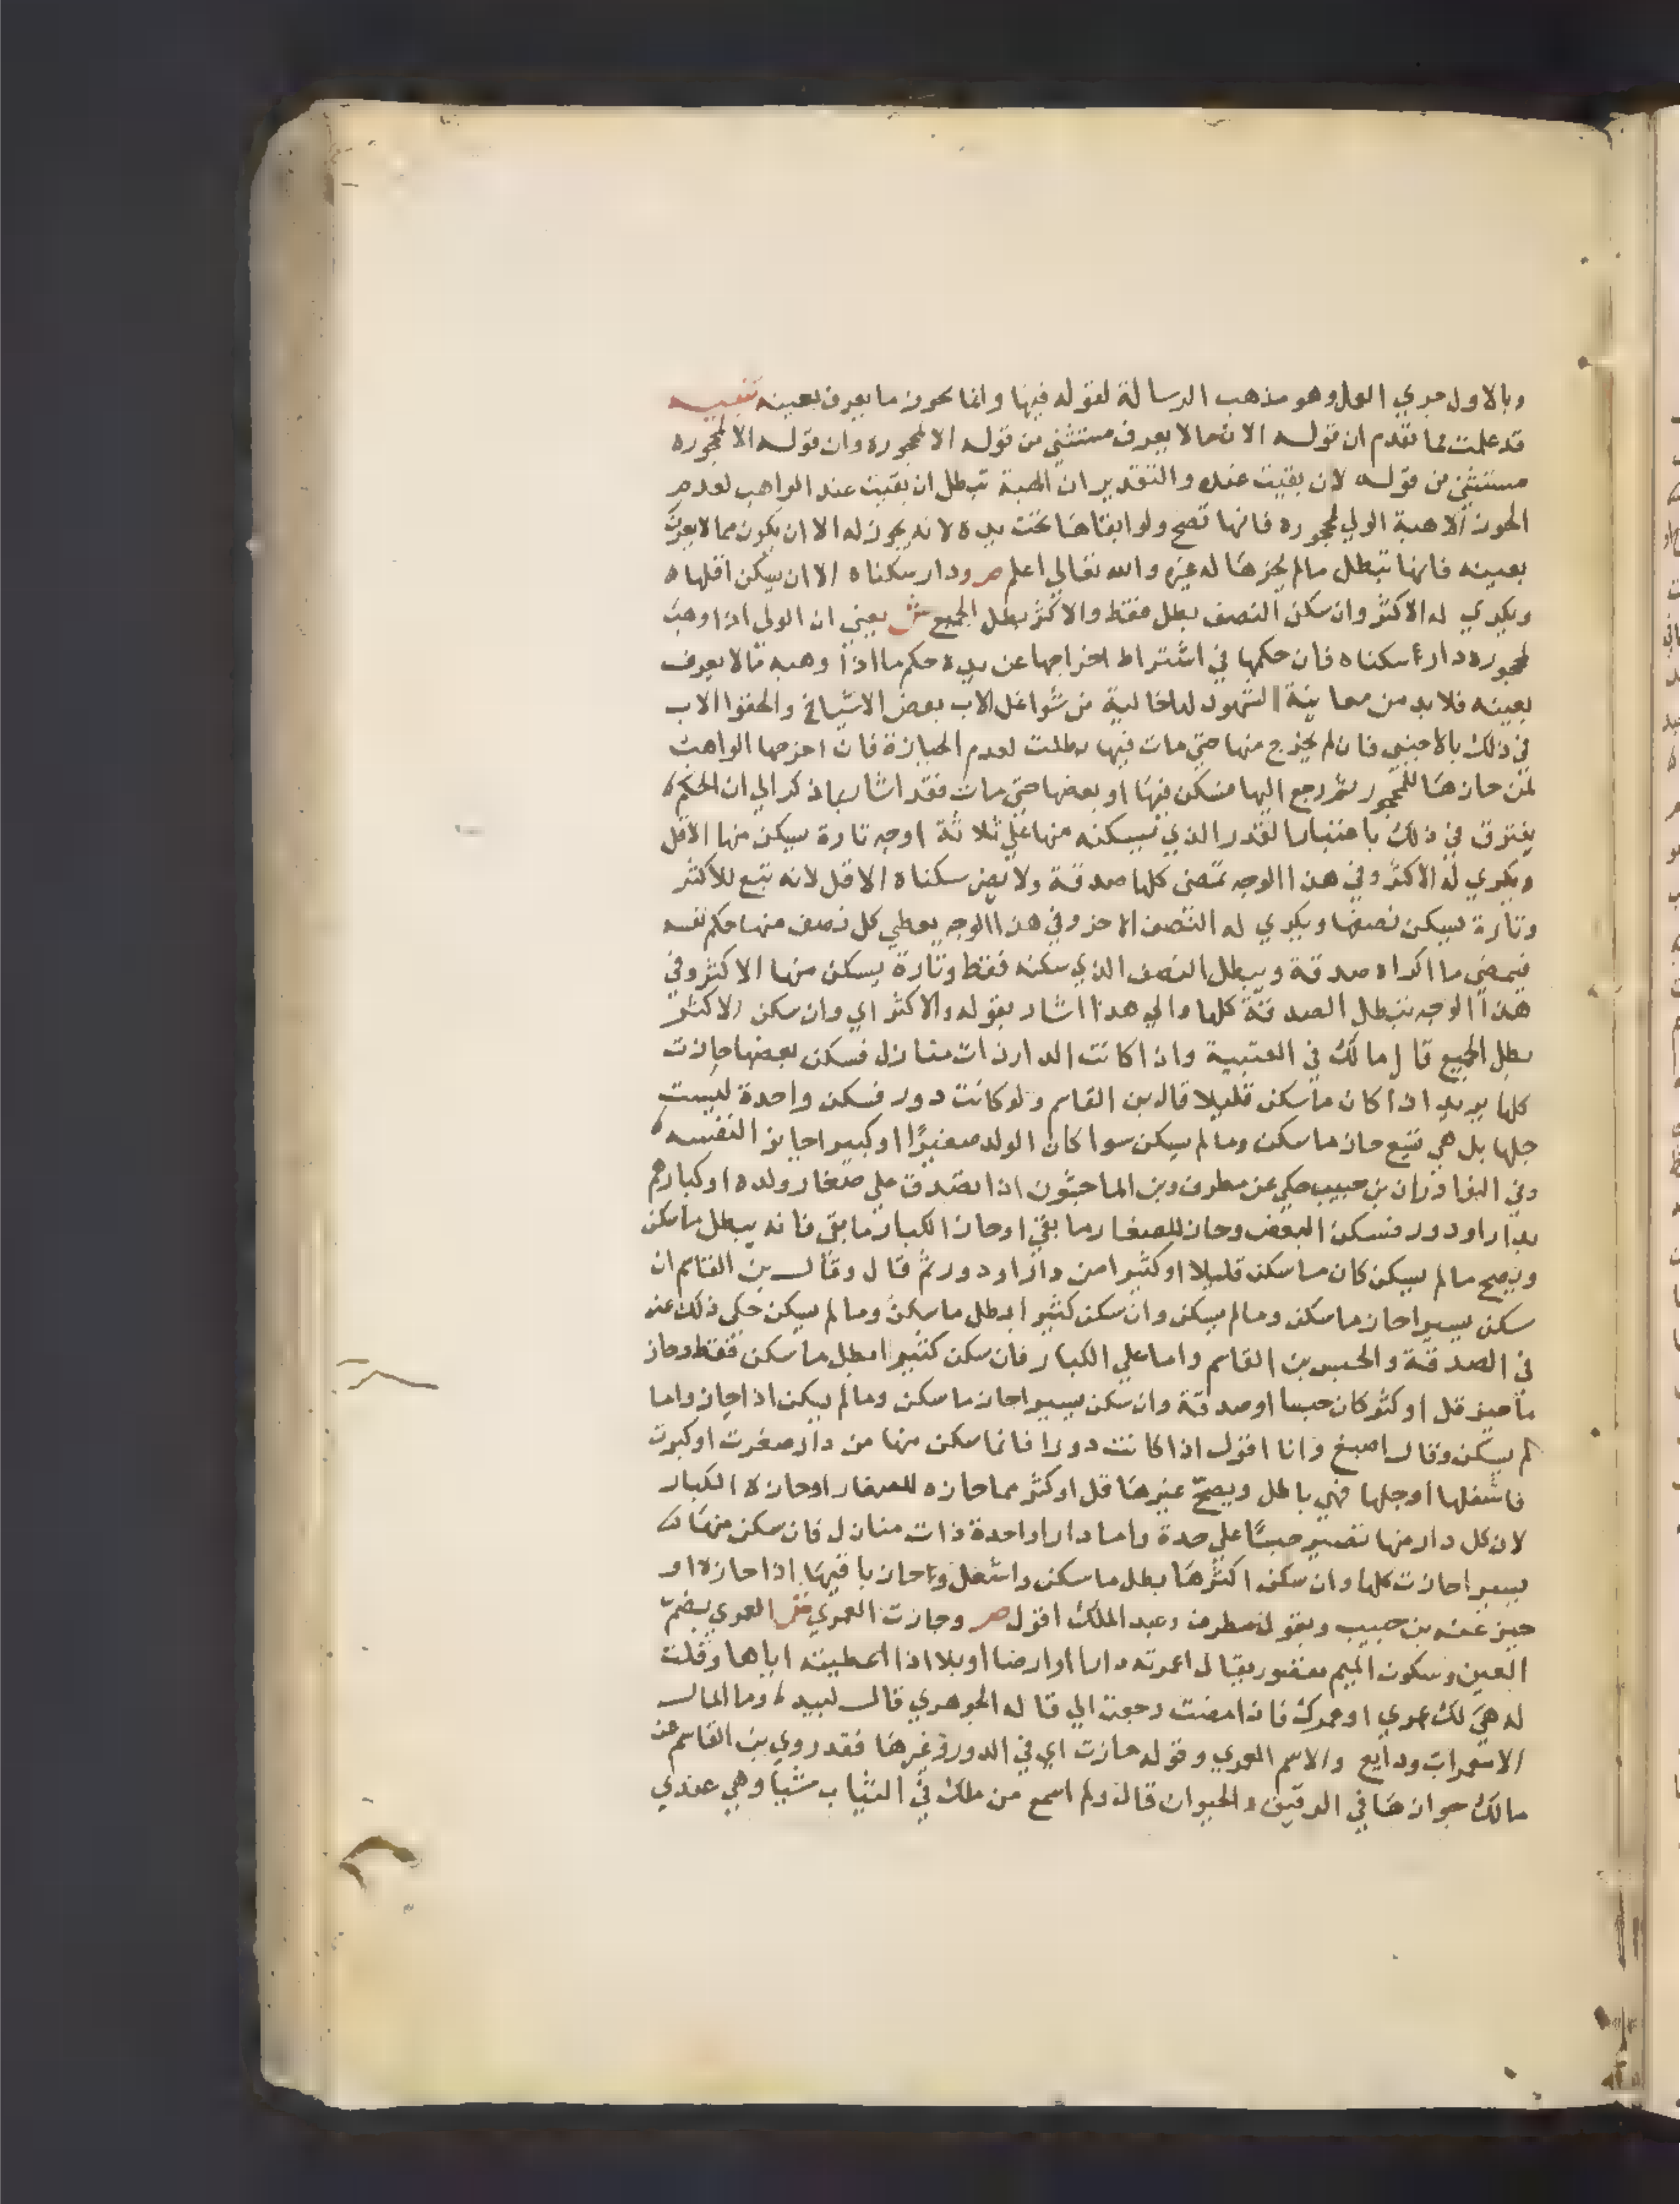 وبالاول جري العمل وهو مذهب الرسالة لقوله فيها وانما يحوز ما يعرف بعينه تنبيه
قد علمت مما تقدم ان قوله الا ما لا يعرف مستثني من قوله الا لمحجوره وان قوله الا لمحجوره
مستثني من قوله لان بقيت عنده والتقدير ان الهبة تبطل ان بقيت عند الواهب لعدم
الحوز الا هبة الولي لمحجوره فانها تصح ولو ابقاها تحت يده لانه يحوز له الا ان يكون مما لا يعرف
بعينه فانها تبطل ما لم يحزها له غيره والله تعالي اعلم ص ودار سكناه الا ان يسكن اقلها
ويكري له الاكثر وان سكن النصف بطل فقط والاكثر بطل الجميع ش يعني ان الولي اذا وهب
لمحجوره دار سكناه فان حكمها في اشتراط اخراجها عن يده حكم ما اذا وهبه مالا يعرف
بعينه فلا بد من معاينة الشهود لها خالية من شواغل الاب بعض الاشياخ والحقوا الاب
في ذلك بالاجنبي فان لم يخرج منها حتي مات فيها بطلت لعدم الحيازة فان اخرجها الواهب
لمن حازها للمحجور ثم رجع اليها فسكن فيها او بعضها حتي مات فقد اشار بما ذكر الي ان الحكم
يفترق في ذلك باعتبار القدر الذي يسكنه منها علي ثلاثة اوجه تارة يسكن منها الاقل
ويكري له الاكثر وفي هذا الوجه تمضي كلها صدقة ولا يضر سكناه الاقل لانه تبع للاكثر
وتارة يسكن نصفها ويكري له النصف الاخر وفي هذا الوجه يعطي كل نصف منها حكم نفسه
فيمضي ما اكراه صدقة ويبطل النصف الذي سكنه فقط وتارة يسكن منها الاكثر وفي
هذا الوجه تبطل الصدقة كلها والي هذا اشار بقوله والاكثر اي وان سكن الاكثر
بطل الجميع قال مالك في العتبية واذا كانت الدار ذات منازل فسكن بعضها جازت
كلها يريد اذا كان ما سكن قليلا قال بن القاسم ولو كانت دور فسكن واحدة ليست
جلها بل هي تتبع جاز ما سكن وما لم يسكن سوا كان الولد صغيرًا او كبيرا حايزا لنفسه
وفي النوادر ان بن حبيب حكي عن مطرف وبن الماجشون اذا تصدق علي صغار ولده او كبارهم
بدار او دور فسكن البعض وحاز للصغار ما بقي او حاز الكبار ما بقي فانه يبطل ما سكن
ويصح ما لم يسكن كان ما سكن قليلا او كثيرا من دار او دور ثم قال وقال بن القاسم ان
سكن يسيرا جاز ما سكن وما لم يسكن وان سكن كثيرا بطل ما سكن وما لم يسكن حكي ذلك عنه
في الصدقة والحبس بن القاسم واما علي الكبار فان سكن كثيرا بطل ما سكن فقط وجاز
ما حيز قل او كثر كان حبسا او صدقة وان سكن يسيرا جاز ما سكن وما لم يسكن اذا حاز واما
لم يسكن وقال اصبغ وانا اقول اذا كانت دورا فانما سكن منها من دار صغرت او كبرت
فاشغلها او جلها فهي باطل ويصح غيرها قل او كثر مما حازه للصغار او حازه الكبار
لان كل دار منها تصير حبسًا علي حدة واما دارا واحدة ذات منازل فان سكن منها
يسيرا جازت كلها وان سكن اكثرها بطل ما سكن واشغل وجاز باقيها اذا حازه او
حيز عنه بن حبيب وبقول مطرف وعبد الملك اقول ص وجازت العمري ش العمري بضم
العين وسكون الميم مقصور يقال اعمرته دارا او ارضا او ابلا اذا اعطيته اياها وقلت
له هي لك عمري او عمرك فاذا مت رجعت الي قاله الجوهري قال لبيد وما المال
الا معمرات ودايع والاسم العمري وقوله جازت اي في الدور وغيرها فقد روي بن القاسم عن
مالك جوازها في الرقيق والحيوان قال ولم اسمع من ملك في الثياب شيا وهي عندي